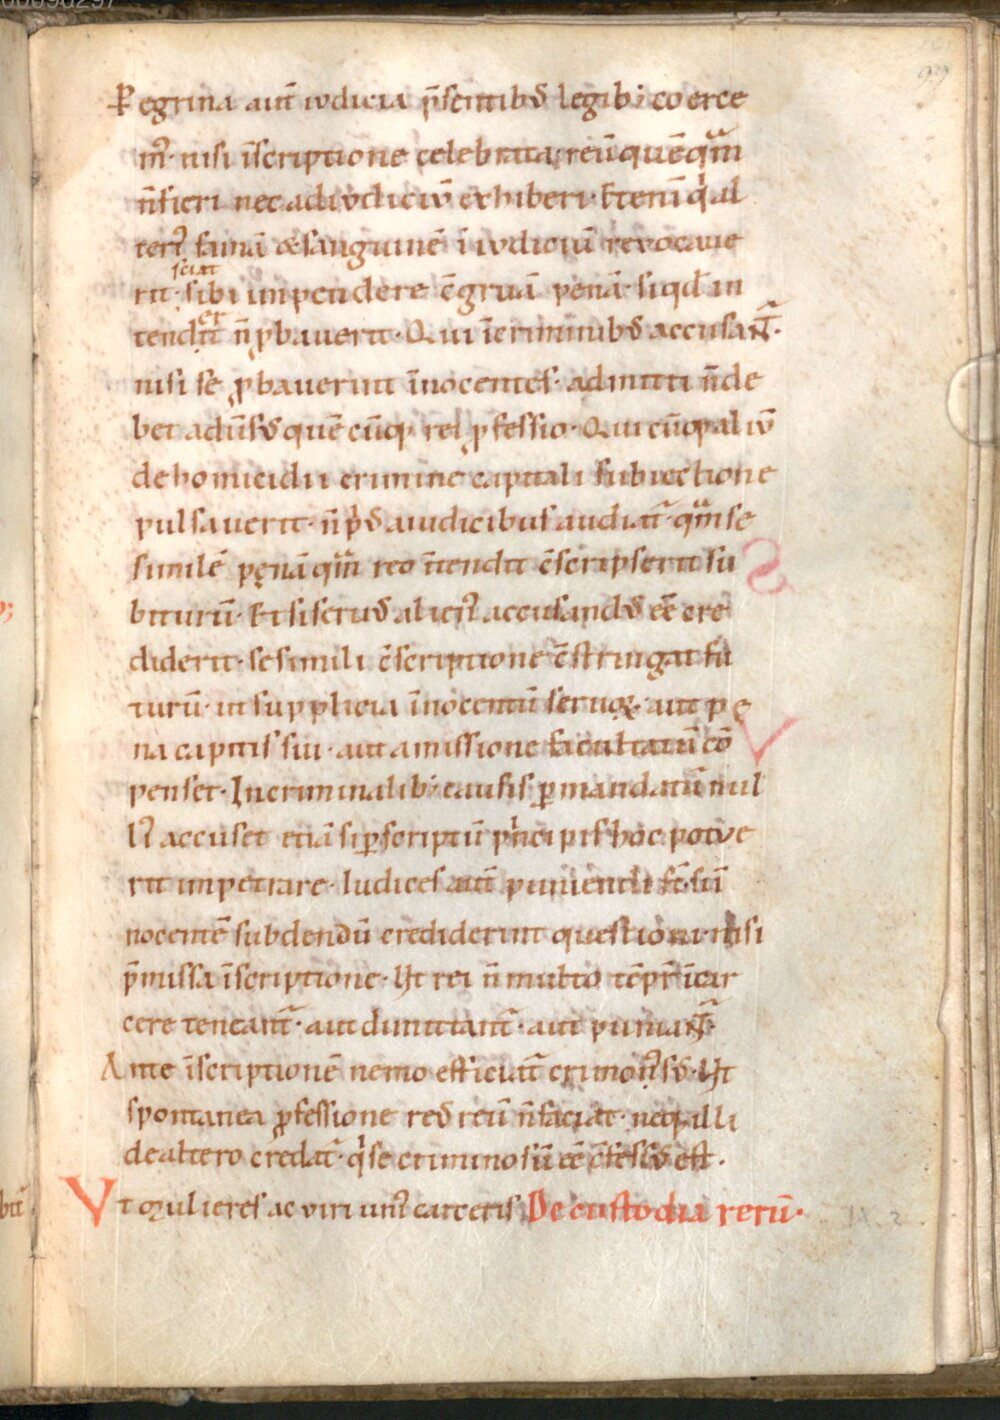 P̲egrina aut̄ iudicia p̄sentibꝰ legib; coerce
mꝰ· nisi īscriptione celebrata· reū quēqᷓm
n̄ fieri nec ad iudiciū exhiberi· Etenī qͥ al
terꝰ famā & sanguinē ī iudiciū revocave
rit· sciat sibi impendere c̄gruā penā· si qd̄ in
tenderit n̄ ꝓbaverit· Qui ī criminibꝰ accusant̄·
nisi se ꝓbaverint īnocentes· admitti n̄ de
bet adūsꝰ quēcūqꝫ rei ꝓfessio· Quicūqꝫ aliū
de homicidii crimine capitali subiectione
pulsaverit· n̄ pͥꝰ a iudicibus audiat̄· qᷓm se
similē pęnā qᷓm reo ītendit c̄scripserit su
biturū· Et si servꝰ alicꝰ accusandꝰ eē cre
diderit· se simili c̄scriptione c̄stringat fu
turū· ut supplicia īnocentiū servoꝝ· aut pę
na capitis sui· aut amissione facultatū cō
penset· In criminalib; causis ꝑ mandatū nul
lꝰ accuset etiā si ꝑ scriptū pͥncipis hoc potue
rit impetrare· Iudices aut̄ puniendi st̄· si ī
nocentē subdendū crediderint questioni· nisi
p̄missa īscriptione· Ut rei n̄ multo tēpr̄ ī car
cere teneant̄· aut dimittant̄· aut puniant̄·
Ante īscriptionē nemo efficiat̄ criminosꝰ· Ut
spontanea ꝓfessione reꝰ reū n̄ faciat· neqꝫ illi
de altero credat̄· qͥ se criminosū eē c̄fessꝰ est·
Ut mulieres ac viri unꝰ carceris De custodia reorū·